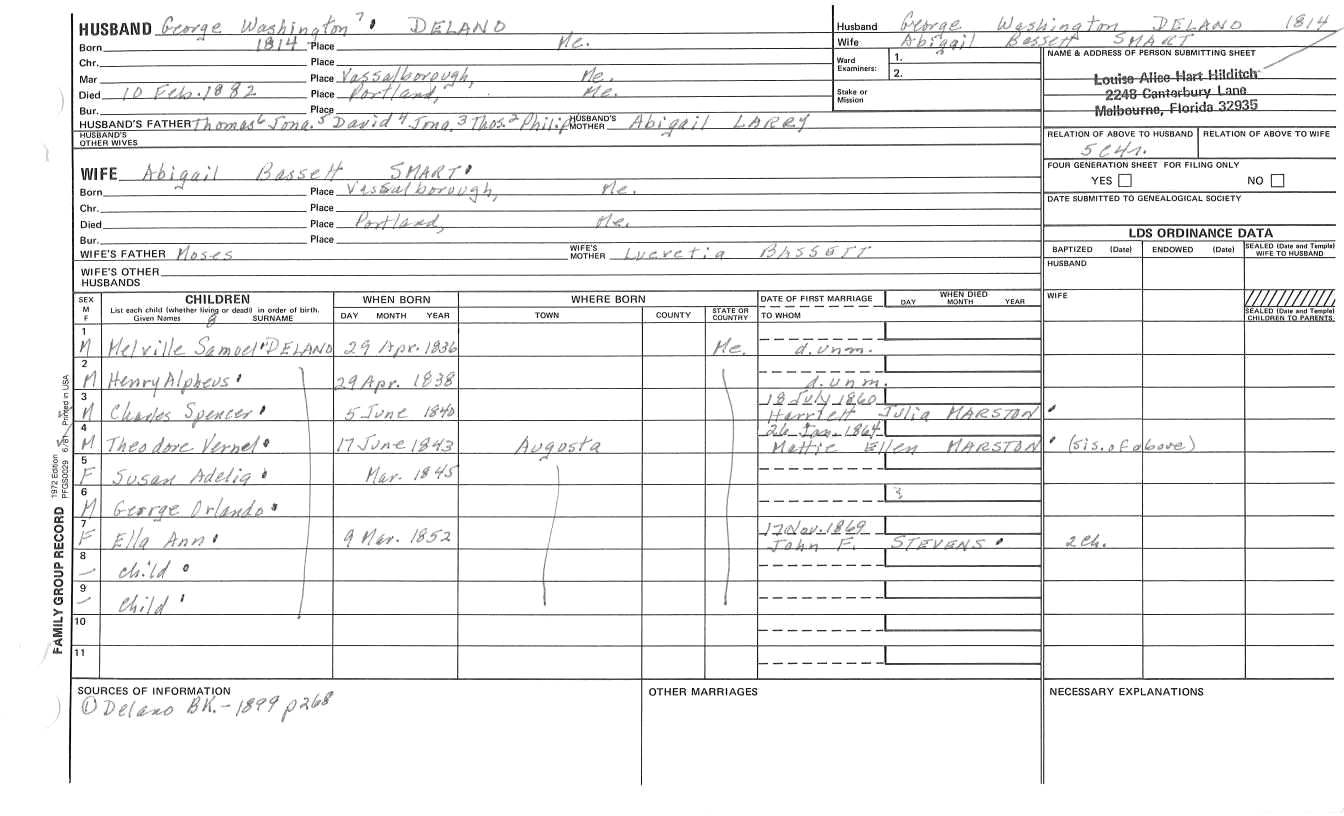 HUSBAND George Washington 7 DELANO
Born 1814 Place Me.
Chr. Place
Mar Place Vassalborough, Me.
Died 10 Feb. 1882 Place Portland, Me.
Bur. Place
HUSBAND'S FATHER Thomas 6 Jona. 5 David 4 Jona. 3 Thos. 2 Philip HUSBAND'S MOTHER Abigail LARRY
HUSBAND'S OTHER WIVES
WIFE Abigail Bassett SMART
Born Place Vassalborough, Me.
Chr. Place
Died Place Portland, Me.
Bur. Place
WIFE'S FATHER Moses WIFE'S MOTHER Lucretia BASSETT
WIFE'S OTHER HUSBANDS
Husband George Washington DELANO 1814
Wife Abigail Bassett SMART
Ward Examiners: 1.
2.
Stake or Mission
NAME & ADDRESS OF PERSON SUBMITTING SHEET
Louise Alice Hart Hilditch
2248 Canterbury Lane
Melbourne, Florida 32935
RELATION OF ABOVE TO HUSBAND RELATION OF ABOVE TO WIFE
5C4r.
FOUR GENERATION SHEET FOR FILING ONLY
YES NO
DATE SUBMITTED TO GENEALOGICAL SOCIETY
LDS ORDINANCE DATA
BAPTIZED (Date) ENDOWED (Date) SEALED (Date and Temple) WIFE TO HUSBAND
HUSBAND
WIFE
SEALED (Date and Temple) CHILDREN TO PARENTS
SEX M F CHILDREN WHEN BORN WHERE BORN DATE OF FIRST MARRIAGE WHEN DIED
List each child (whether living or dead) in order of birth. DAY MONTH YEAR TOWN COUNTY STATE OR COUNTRY TO WHOM DAY MONTH YEAR
Given Names 8 SURNAME
1 M Melville Samuel DELANO 29 Apr. 1836 Me. d. unm.
2 M Henry Alpheus 29 Apr. 1838 d. unm.
3 M Charles Spencer 5 June 1840 18 July 1860 Harriett Julia MARSTON
4 M Theodore Vernel 17 June 1843 Augosta 26 Jan. 1864 Mattie Ellen MARSTON (sis. of above)
5 F Susan Adelia Mar. 1845
6 M George Orlando
7 F Ella Ann 9 Mar. 1852 17 Nov. 1869 John F. STEVENS 2 ch.
8 child
9 child
10
11
SOURCES OF INFORMATION
① Delano BK. - 1899 p268
OTHER MARRIAGES
NECESSARY EXPLANATIONS
FAMILY GROUP RECORD
1972 Edition
PFGS0029 6/81 Printed in USA